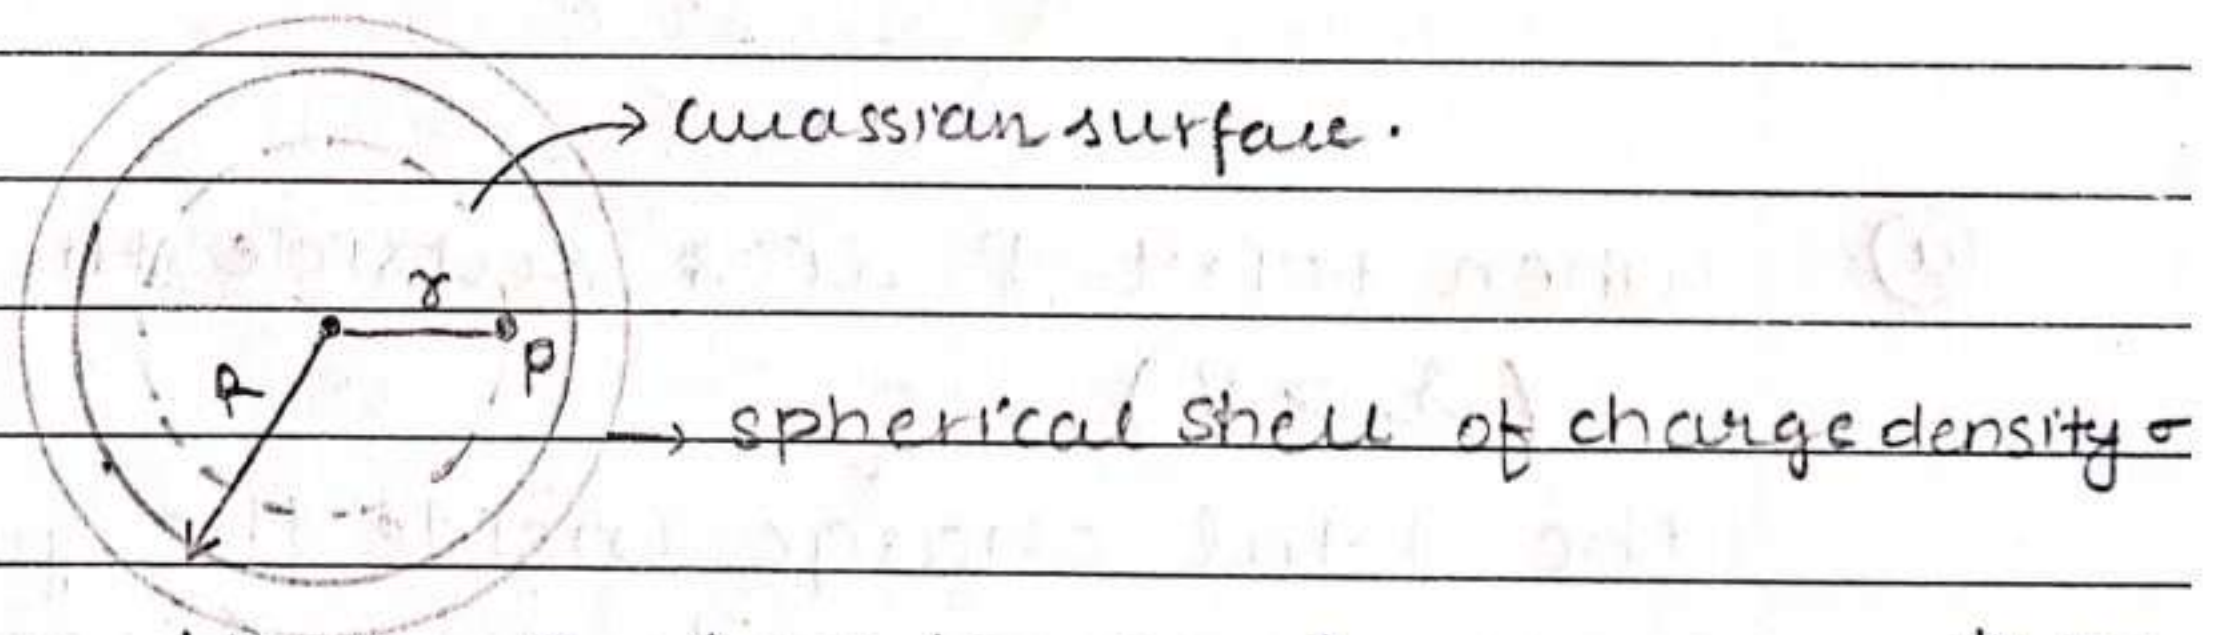 → Guassian surface.
r
P
R
→ spherical shell of charge density σ